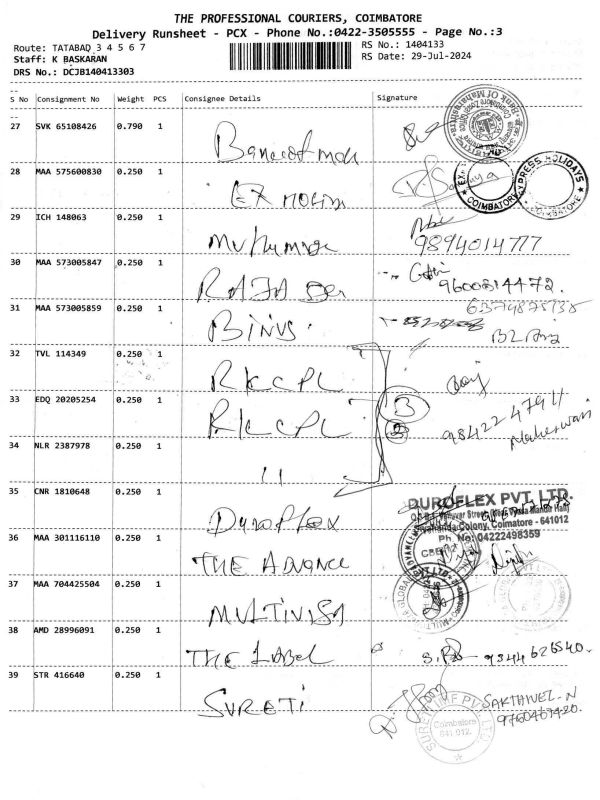 THE PROFESSIONAL COURIERS, COIMBATORE
Delivery Runsheet - PCX - Phone No.:0422-3505555 - Page No.:3
Route: TATABAD 3 4 5 6 7
RS No.: 1404133
Staff: K BASKARAN
RS Date: 29-Jul-2024
DRS No.: DCJB140413303
S No Consignment No Weight PCS Consignee Details Signature
27 SVK 65108426 0.790 1
Bank Of Maharashtra
28 MAA 575600830 0.250 1
EXPRESS HOLIDAYS
COIMBATORE
29 ICH 148063 0.250 1
9894014777
30 MAA 573005847 0.250 1
RAJA
9600814472.
31 MAA 573005859 0.250 1
BINUS.
32 TVL 114349 0.250 1
RKCPL
33 EDQ 20205254 0.250 1
RKCPL
3
984224794
Maheswari
34 NLR 2387978 0.250 1
"
35 CNR 1810648 0.250 1
Duroflex
DUROFLEX PVT. LTD.
Colony, Coimatore - 641012
Ph. No: 04222498359
36 MAA 301116110 0.250 1
THE ADVANCE
37 MAA 704425504 0.250 1
MULTIVISA
38 AMD 28996091 0.250 1
THE LABEL
9344626540.
39 STR 416640 0.250 1
SURETI
SAKTHIVEL.N
9760467420.
SURETI IMF PVT. LTD.
Coimbatore
641 012.